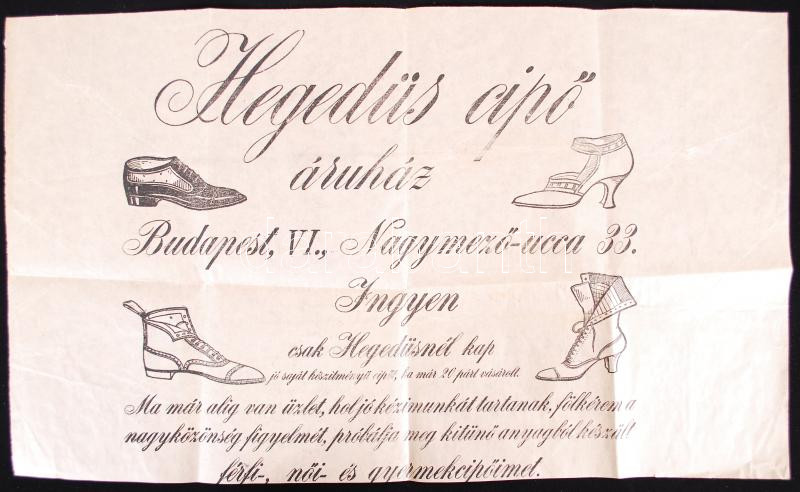 Hegedüs cipő
áruház
Budapest, VI., Nagymező-ucca 33.
Ingyen
csak Hegedüsnél kap
jó saját készitményü cipőt, ha már 20 párt vásárolt.
Ma már alig van üzlet, hol jó kézimunkát tartanak, fölkérem a
nagyközönség figyelmét, próbálja meg kitünő anyagból készült
férfi-, női- és gyermekcipőimet.